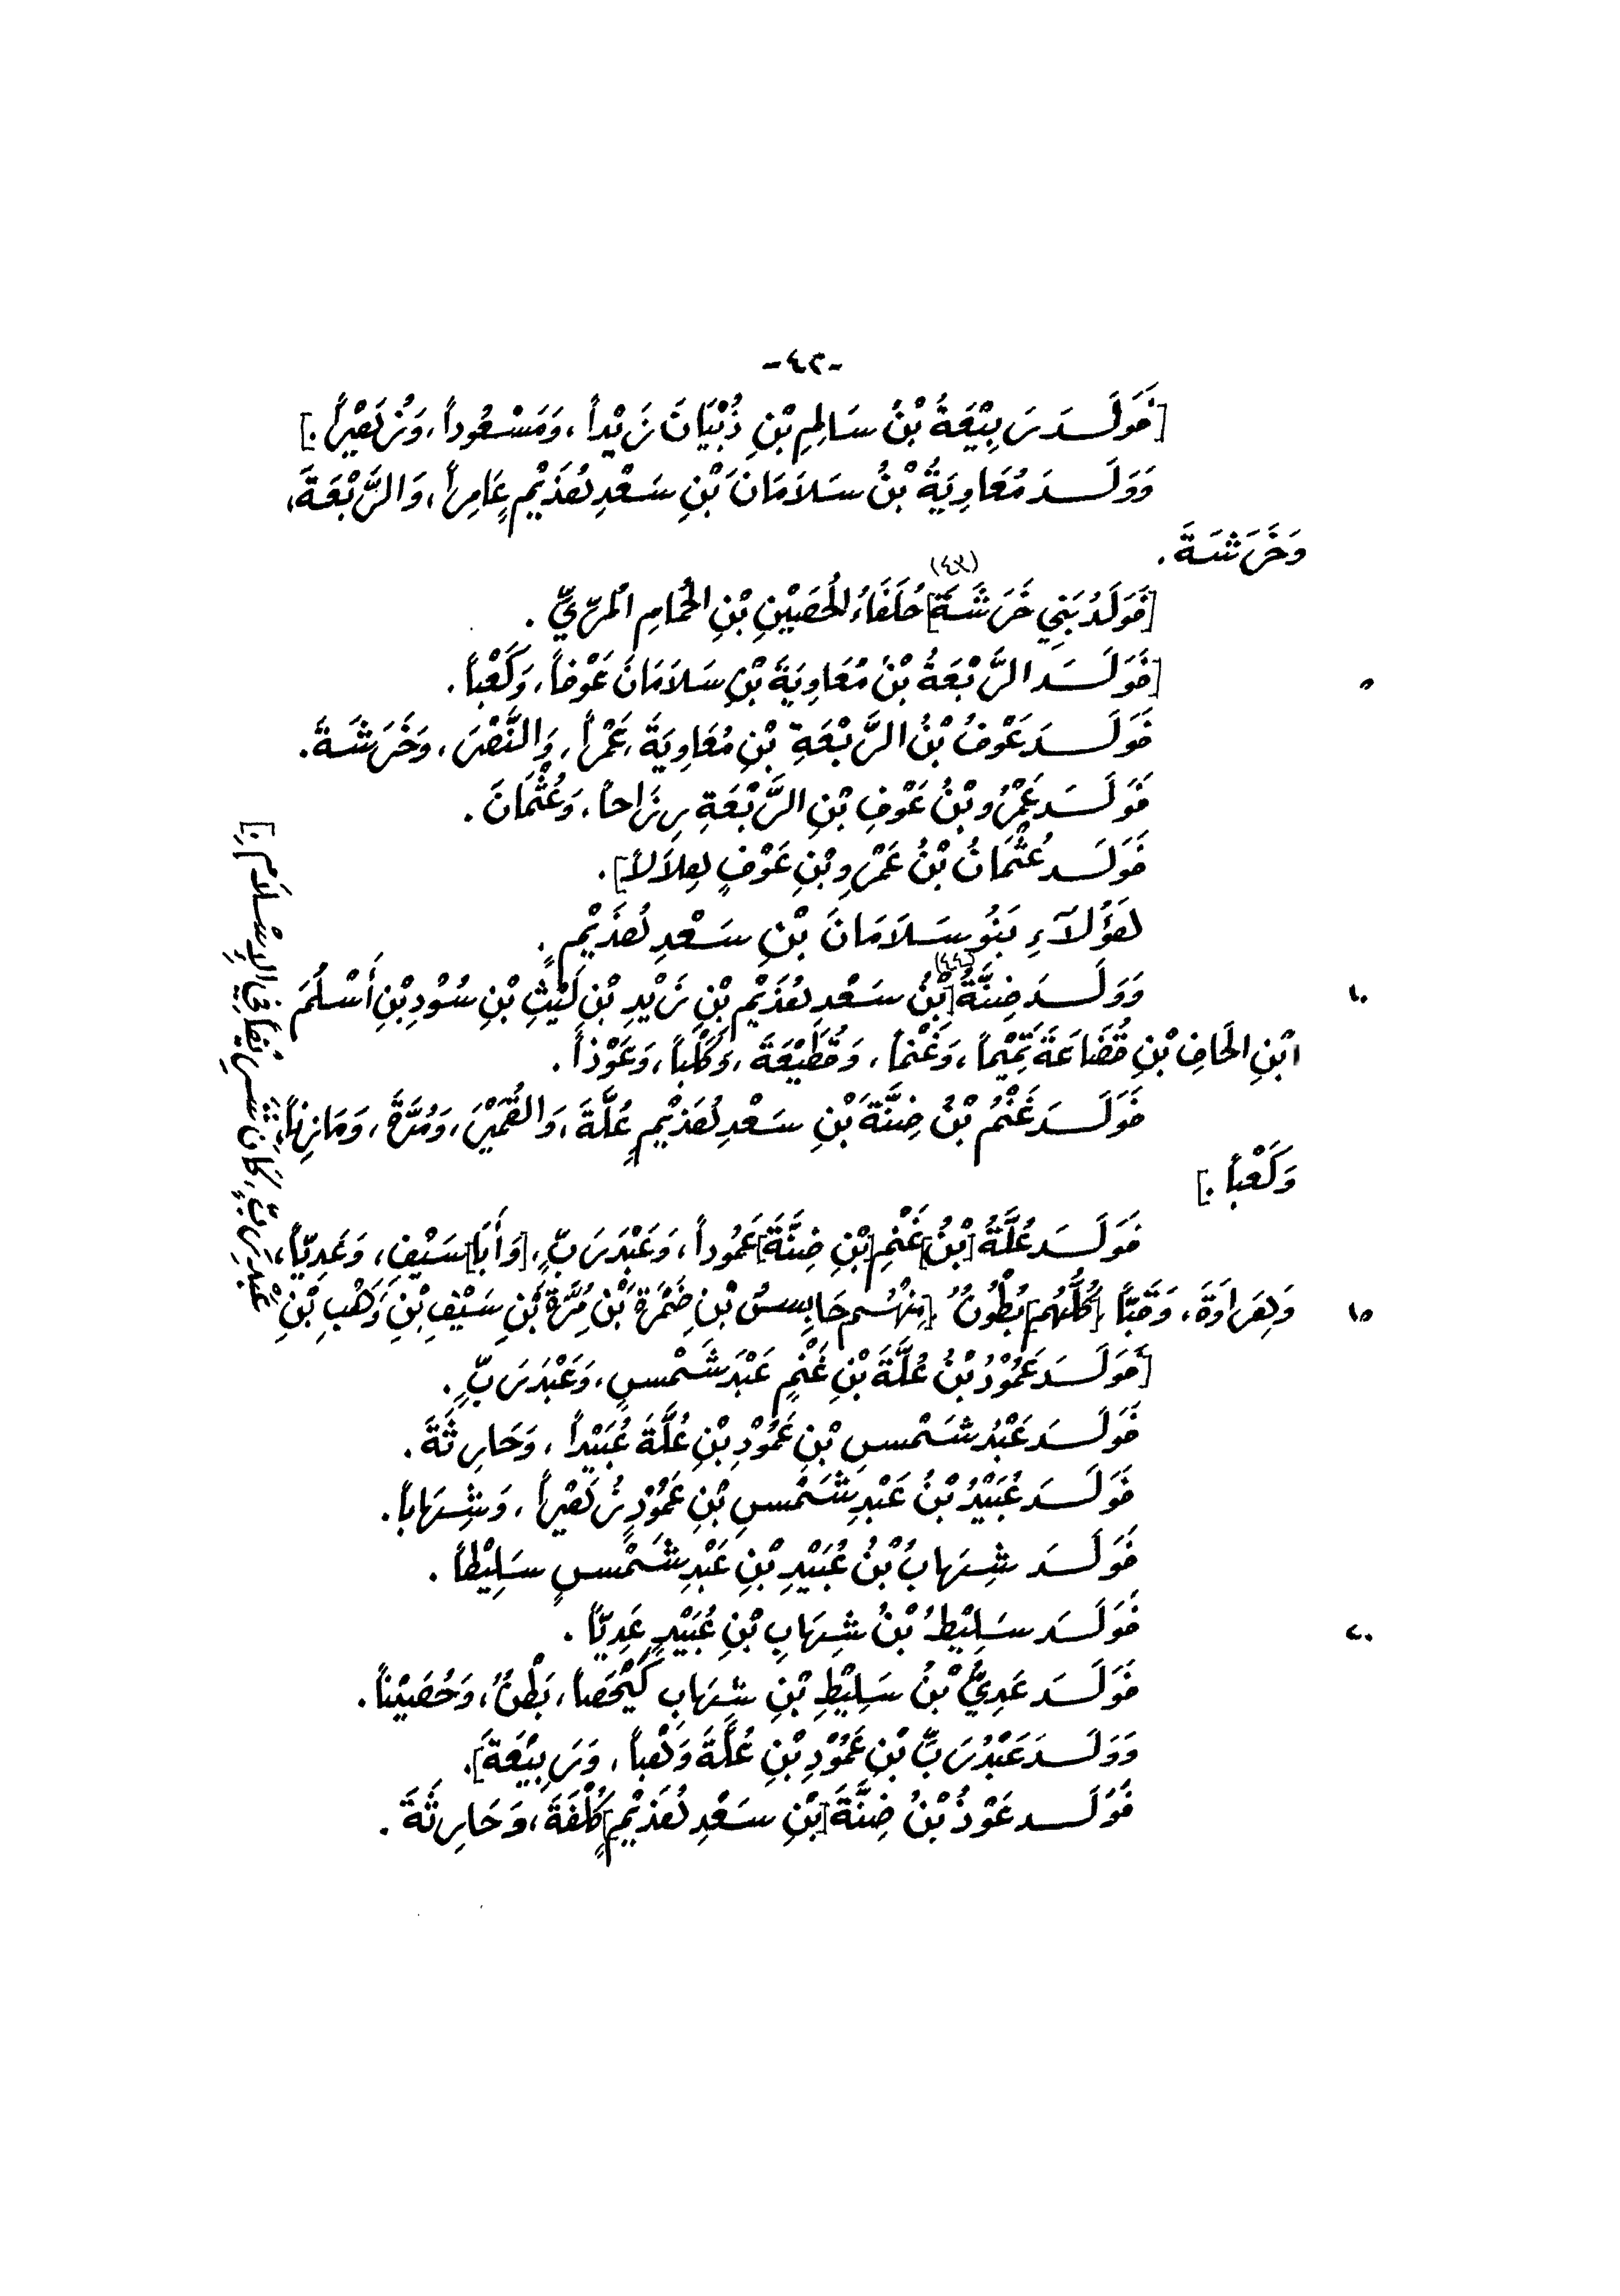 -٤٢-
[فَوَلَدَ رَبِيْعَةُ بْنُ سَالِمِ بْنِ ذُبْيَانَ زَيْداً، وَمَسْعُوداً، وَزُهَيْراً.]
وَوَلَدَ مُعَاوِيَةُ بْنُ سَلَامَانَ بْنِ سَعْدِ هُذَيْمٍ عَامِراً، وَالرَّبْعَةَ،
وَخَرَشَةَ.
[فَوَلَدُ بَنِي خَرَشَةَ](٤٣) حُلَفَاءُ الْحُصَيْنِ بْنِ الحُمَامِ الْمُرِّيِّ.
[فَوَلَدَ الرَّبْعَةُ بْنُ مُعَاوِيَةَ بْنِ سَلَامَانَ عَوْفاً، وَكَعْباً.
٥
فَوَلَدَ عَوْفُ بْنُ الرَّبْعَةِ بْنِ مُعَاوِيَةَ، عَمْراً، وَالنَّضْرَ، وَخَرَشَةَ.
فَوَلَدَ عَمْرُو بْنُ عَوْفِ بْنِ الرَّبْعَةِ رِزَاحاً، وَعُثْمَانَ.
فَوَلَدَ عُثْمَانُ بْنُ عَمْرِو بْنِ عَوْفٍ هِلَالاً].
هَؤُلَآءِ بَنُو سَلَامَانَ بْنِ سَعْدِ هُذَيْمٍ.
وَوَلَدَ ضِنَّةُ [بْنُ(٤٤) سَعْدِ هُذَيْمِ بْنِ زَيْدِ بْنِ لَيْثِ بْنِ سُوْدِ بْنِ أَسْلُمَ
١٠
ابْنِ الحَافِ بْنِ قُضَاعَةَ تَمِيْماً، وَغَنْماً، وَقُطَيْعَةَ، وَكَلْباً، وَعَوْذاً.
فَوَلَدَ غَنْمُ بْنُ ضِنَّةَ بْنِ سَعْدِ هُذَيْمٍ عُلَّةَ، وَالقُمَيْرَ، وَمُرَّةَ، وَمَازِناً،
وَكَعْباً.]
فَوَلَدَ عُلَّةُ [بْنُ] غَنْمِ [بْنِ ضِنَّةَ] عَمُوداً، وَعَبْدَ رَبٍّ، [وَأَبَا] سَيْفٍ، وَعَدِيّاً،
وَهِرَاوَةَ، وَقَبّاً [كُلُّهُم] بُطُونٌ [مِنْهُم حَابِسُ بْنُ ضَمْرَةَ بْنِ مُرَّةَ بْنِ سَيْفِ بْنِ وَهْبِ بْنِ
١٥
عَبْدِ رَبٍّ، كَانَ شَرِيْفاً فِي الإِسْلَامِ.]
[فَوَلَدَ عَمُوْدُ بْنُ عُلَّةَ بْنِ غَنْمٍ عَبْدَ شَمْسٍ، وَعَبْدَ رَبٍّ.
فَوَلَدَ عَبْدُ شَمْسِ بْنِ عَمُوْدِ بْنِ عُلَّةَ عُبَيْداً، وَحَارِثَةَ.
فَوَلَدَ عُبَيْدُ بْنُ عَبْدِ شَمْسِ بْنِ عَمُوْدٍ زُهَيْراً، وَشِهَاباً.
فَوَلَدَ شِهَابُ بْنُ عُبَيْدِ بْنِ عَبْدِ شَمْسٍ سَلِيْطاً.
فَوَلَدَ سَلِيْطُ بْنُ شِهَابِ بْنِ عُبَيْدٍ عَدِيّاً.
٢٠
فَوَلَدَ عَدِيُّ بْنُ سَلِيْطِ بْنِ شِهَابٍ كَيْحَصاً، بَطْنٌ، وَحُصَيْناً.
وَوَلَدَ عَبْدُ رَبِّ بْنِ عَمُوْدِ بْنِ عُلَّةَ وَهْباً، وَرَبِيْعَةَ].
فَوَلَدَ عَوْذُ بْنُ ضِنَّةَ [بْنِ سَعْدِ هُذَيْمٍ] كُلْفَةَ، وَحَارِثَةَ.